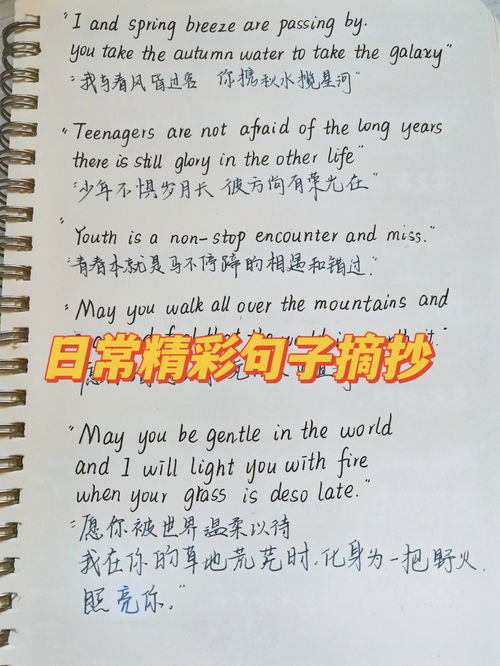 "I and spring breeze are passing by.
you take the autumn water to take the galaxy"
"我与春风皆过客 你携秋水揽星河"
"Teenagers are not afraid of the long years
there is still glory in the other life"
"少年不惧岁月长 彼方尚有荣光在"
"Youth is a non-stop encounter and miss."
"青春本就是马不停蹄的相遇和错过."
"May you walk all over the mountains and
日常精彩句子摘抄
"May you be gentle in the world
and I will light you with fire
when your grass is deso late."
"愿你被世界温柔以待
我在你的草地荒芜时.化身为一把野火.
照亮你."